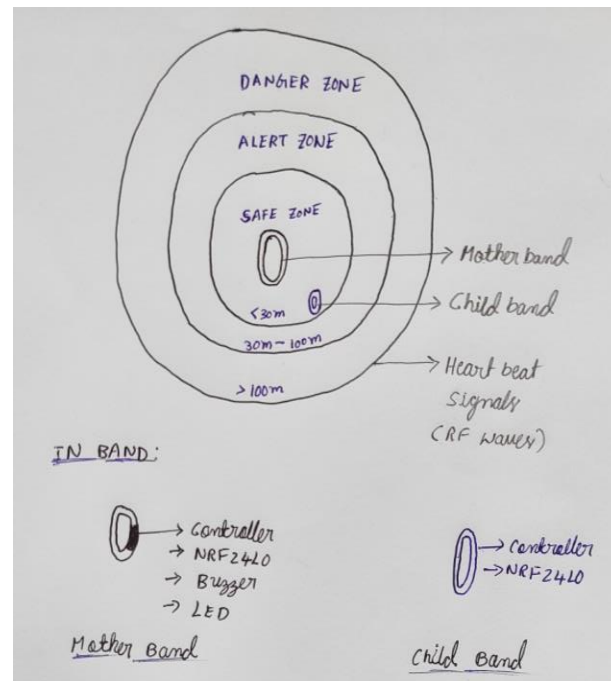 DANGER ZONE
ALERT ZONE
SAFE ZONE
Mother band
<30m
Child band
30m - 100m
>100m
Heart beat
signals
(RF waves)
IN BAND:
Controller
NRF24L0
Buzzer
LED
Mother Band
Controller
NRF24L0
Child Band